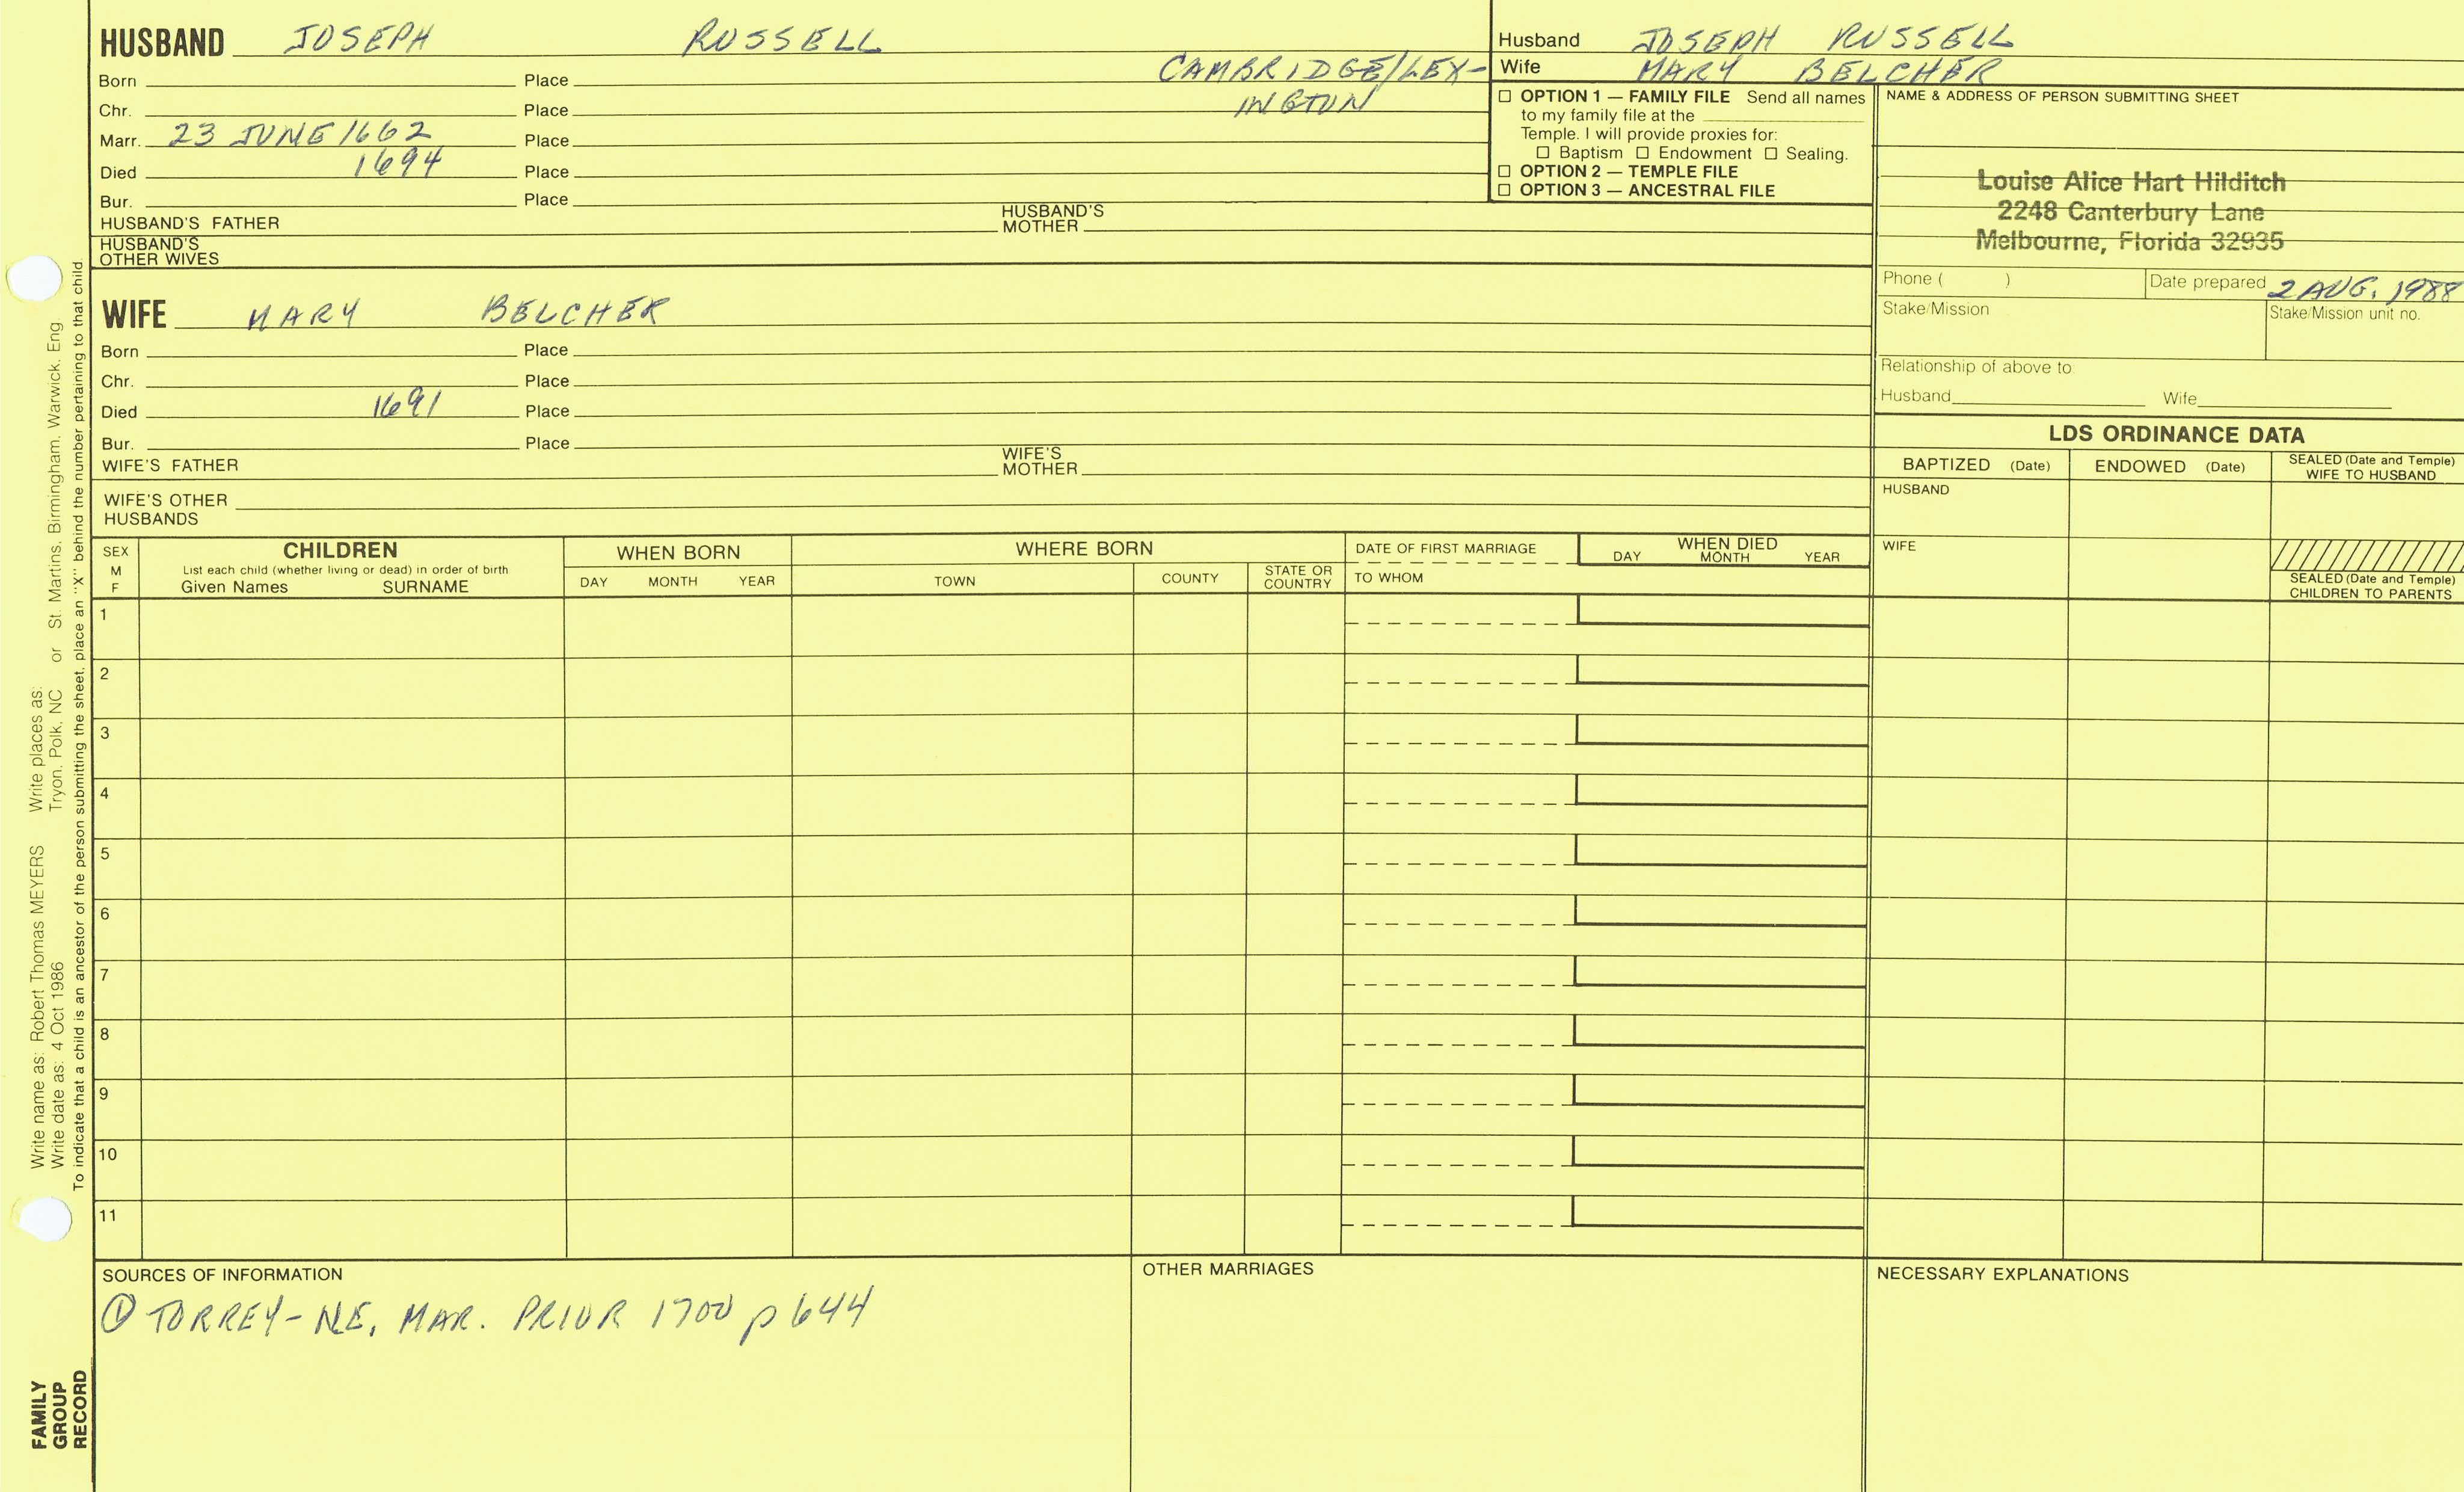 HUSBAND JOSEPH RUSSELL
Born Place CAMBRIDGE/LEX-
Chr. Place INGTON
Marr. 23 JUNE 1662 Place
Died 1694 Place
Bur. Place
HUSBAND'S FATHER HUSBAND'S MOTHER
HUSBAND'S OTHER WIVES
WIFE MARY BELCHER
Born Place
Chr. Place
Died 1691 Place
Bur. Place
WIFE'S FATHER WIFE'S MOTHER
WIFE'S OTHER HUSBANDS
Husband JOSEPH RUSSELL
Wife MARY BELCHER
☐ OPTION 1 — FAMILY FILE Send all names
to my family file at the
Temple. I will provide proxies for:
☐ Baptism ☐ Endowment ☐ Sealing.
☐ OPTION 2 — TEMPLE FILE
☐ OPTION 3 — ANCESTRAL FILE
NAME & ADDRESS OF PERSON SUBMITTING SHEET
Louise Alice Hart Hilditch
2248 Canterbury Lane
Melbourne, Florida 32935
Phone ( ) Date prepared 2 AUG. 1988
Stake/Mission Stake/Mission unit no.
Relationship of above to:
Husband Wife
LDS ORDINANCE DATA
BAPTIZED (Date) ENDOWED (Date) SEALED (Date and Temple) WIFE TO HUSBAND
HUSBAND
WIFE
SEALED (Date and Temple)
CHILDREN TO PARENTS
SEX
M
F
CHILDREN
List each child (whether living or dead) in order of birth
Given Names SURNAME
WHEN BORN
DAY MONTH YEAR
WHERE BORN
TOWN COUNTY STATE OR COUNTRY
DATE OF FIRST MARRIAGE
TO WHOM
WHEN DIED
DAY MONTH YEAR
1
2
3
4
5
6
7
8
9
10
11
SOURCES OF INFORMATION
① TORREY-N.E. MAR. PRIOR 1700 p 644
OTHER MARRIAGES
NECESSARY EXPLANATIONS
Write name as: Robert Thomas MEYERS Write places as:
Write date as: 4 Oct 1986 Tryon, Polk, NC or St. Martins, Birmingham, Warwick, Eng.
To indicate that a child is an ancestor of the person submitting the sheet, place an "X" behind the number pertaining to that child.
FAMILY
GROUP
RECORD